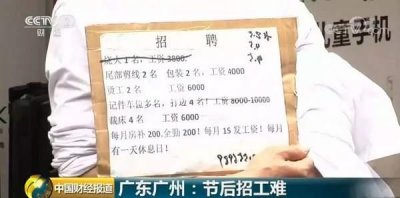 CCTV 2
财经
儿童手机
招 聘
烧大1名，工资3800.
尾部剪线2名 包装2名，工资4000
员工2名 工资6000
记件车位多名，打边4名！工资8000-10000
裁床4名 工资6000
每月房补200.全勤200！每月15发工资！每月
有一天休息日！
中国财经报道
广东广州：节后招工难